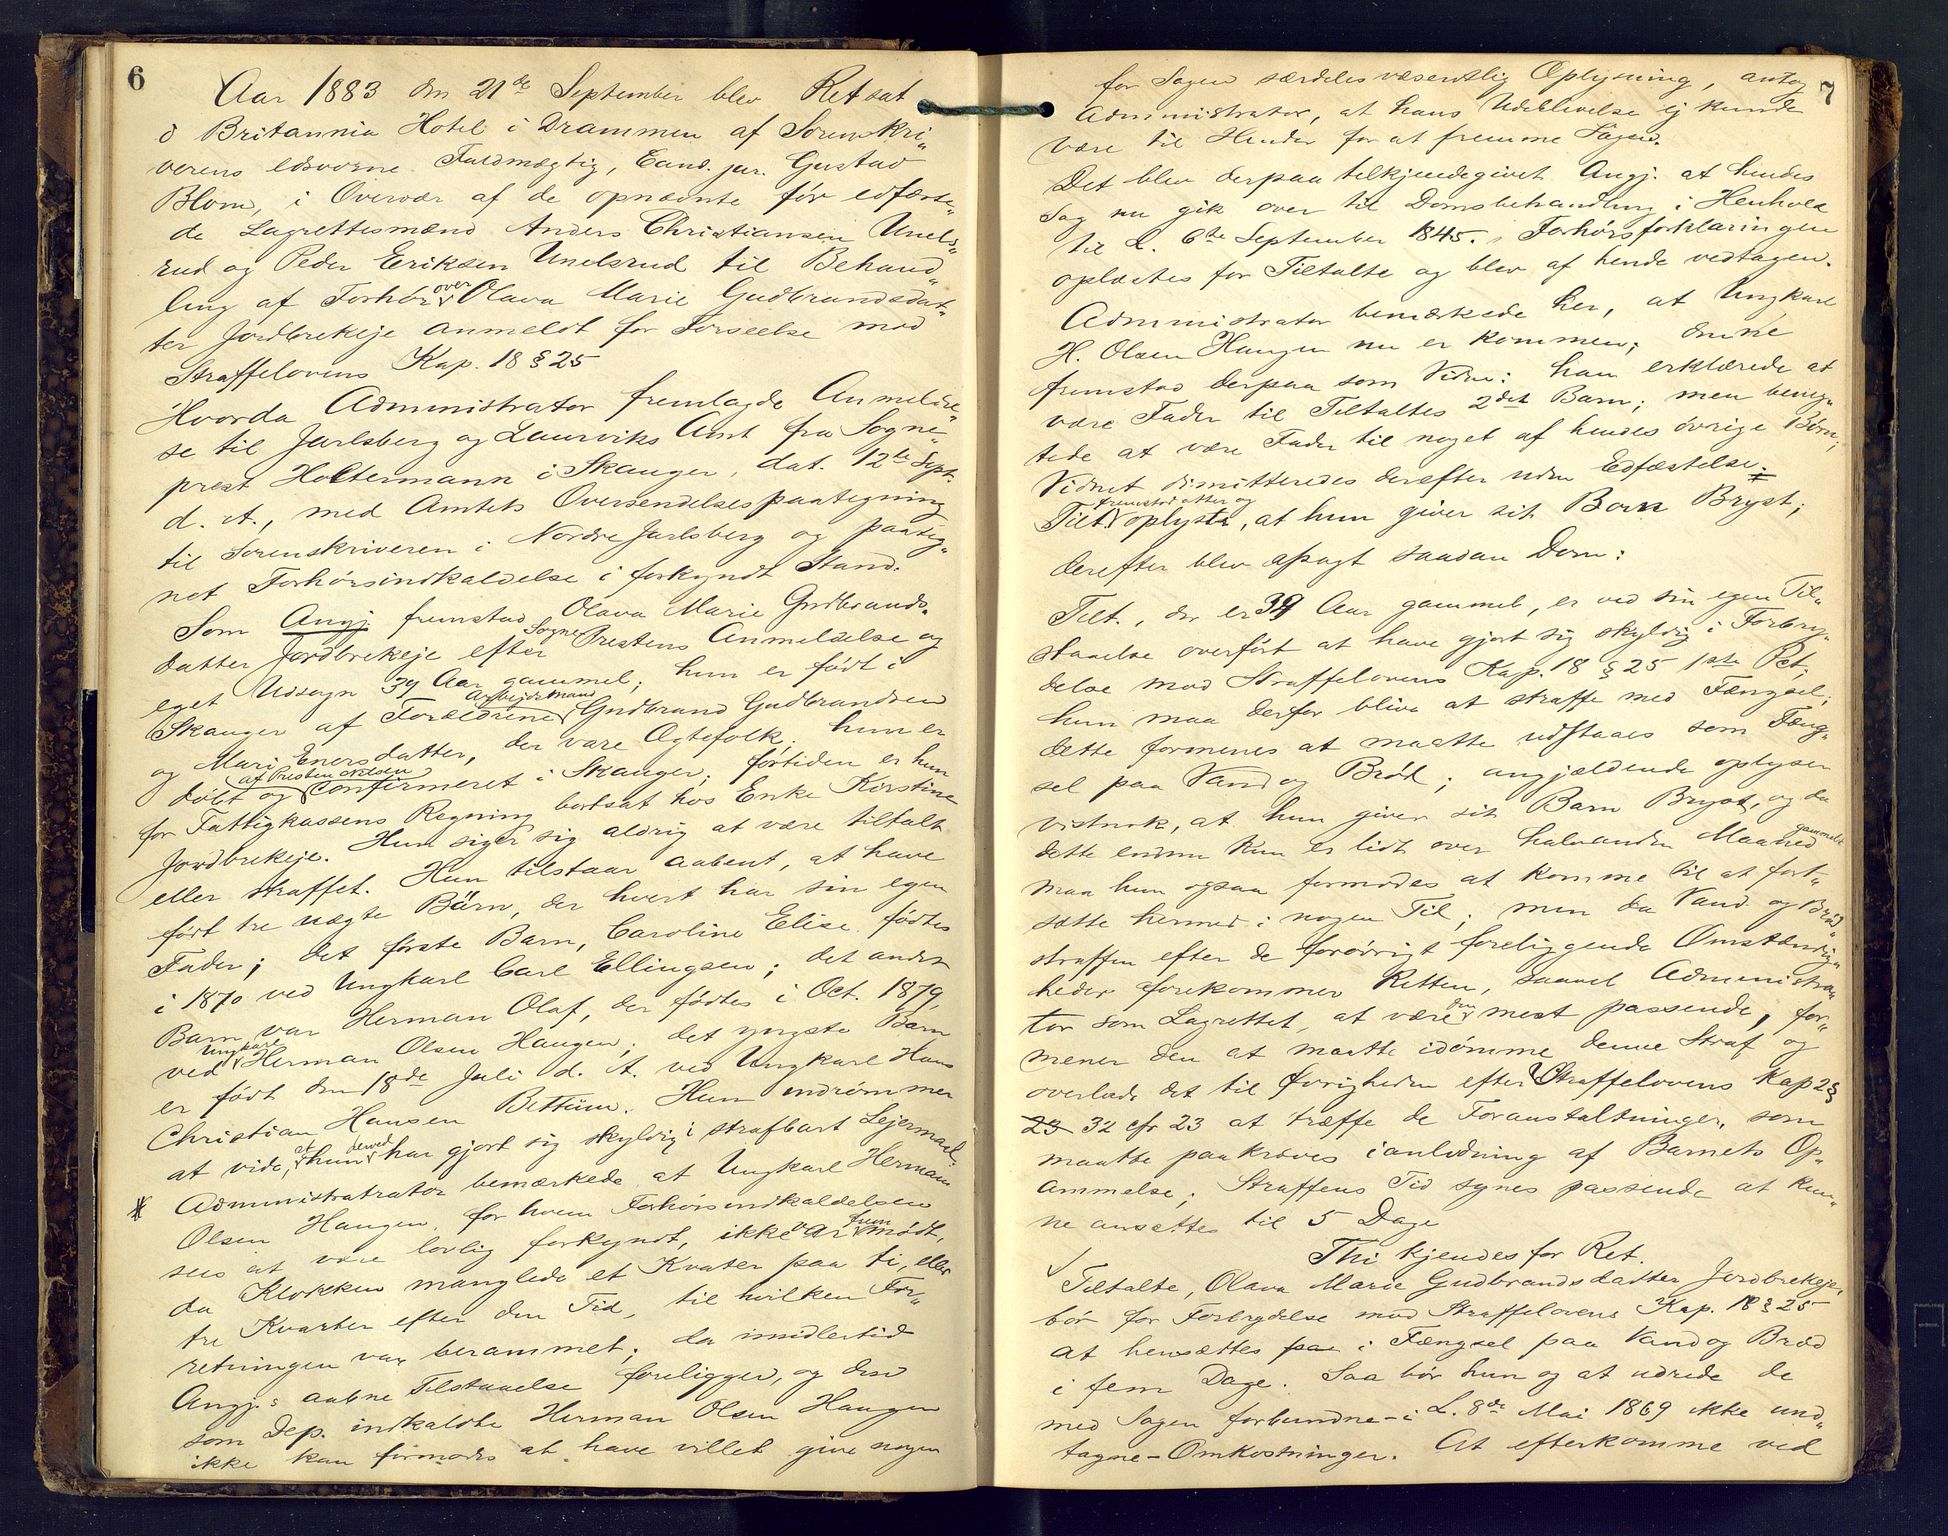 6
Aar 1883 den 21de September blev Ret sat
i Britannia Hotel i Drammen af Sorenskri„
verens edsvorne Fuldmægtig, Cand. jur. Gustav
Blom, i Overvær af de opnævnte før edfæste„
de Lagrettesmænd Anders Christiansen Unels„
rud og Peder Eriksen Unelsrud til Behand„
ling af Forhør over Olava Marie Gudbrandsdat„
ter Jordbrekeje anmeldt for Forseelse mod
Straffelovens Kap. 18 § 25
Hvorda Administrator fremlagde Anmeldel„
se til Jarlsberg og Laurviks Amt fra Sogne„
prest Holtermann i Skauger, dat. 12te Sept.
d. A., med Amtets Oversendelsespaategning
til Sorenskriveren i Nordre Jarlsberg og paateg„
net Forhørsindkaldelse i forkyndt Stand.
Som Angj. fremstod Olava Marie Gudbrands„
datter Jordbrekeje efter Sogne Prestens Anmeldelse og
eget Udsagn 39 Aar gammel; hun er født i
Skauger af Forældrene Arbejdsmand Gudbrand Gudbrandsen
og Mari Enersdatter, der vare Ægtefolk; hun er
døbt og af Presten Nielsen Confirmeret i Skauger; førtiden er hun
for Fattigkassens Regning bortsat hos Enke Kirstine
Jordbrekeje. Hun siger sig aldrig at være tiltalt
eller straffet. Hun tilstaar aabent, at have
født tre uægte Børn, der hvert har sin egen
Fader; det første Barn, Caroline Elise fødtes
i 1870 ved Ungkarl Carl Ellingsen; det andet
Barn var Herman Olaf, der fødtes i Oct. 1879,
ved Ungkarl Herman Olsen Haugen; det yngste Barn
er født den 18de Juli d. A. ved Ungkarl Hans
Christian Hansen Bettum. Hun indrømmer
at vide, at hun derved har gjort sig skyldig i strafbart Lejermaal.
# Administratrator bemærkede at Ungkarl Herman
Olsen Haugen, for hvem Forhørsindkaldelsen
sees at være lovlig forkyndt, ikke var frem mødt,
da Klokken manglede et Kvater paa ti, eller
tre Kvarter efter den Tid, til hvilken For„
retningen var berammet; da imidlertid
Angj.s aabne Tilstaaelse foreligger, og den
som Dep. indkaldte Herman Olsen Haugen
ikke kan formodes at have villet give nogen
7
for Sagen særdeles væsentlig Oplysning, antog
Administrator, at hans Udeblivelse ej kunde
være til Hinder for at fremme Sagen.
Det blev derpaa tilkjendegivet Angj. at hendes
Sag nu gik over til Domsbehandling i Henhold
til L. 6te September 1845. Forhørsforklaringen
oplæstes for Tiltalte og blev af hende vedtagen.
Administrator bemærkede her, at Ungkarl
H. Olsen Haugen nu er kommen; denne
fremstod derpaa som Vidne: han erklærede at
være Fader til Tiltaltes 2det Barn; men beneg„
tede at være Fader til noget af hendes øvrige Børn;
Vidnet dimitteredes derefter uden Edfæstelse. #
Tilt. fremstod atter og oplyste, at hun giver sit Barn Bryst;
derefter blev afsagt saadan Dom:
Tilt., der er 39 Aar gammel, er ved sin egen Til„
staaelse overført at have gjort sig skyldig i Forbry„
delse mod Straffelovens Kap. 18 § 25 1ste Pct;
hun maa derfor blive at straffe med Fængsel;
dette formenes at maatte udstaaes som Fæng„
sel paa Vand og Brød; angjældende oplyser
vistnok, at hun giver sit Barn Bryst, og da
dette endnu kun er lidt over halvanden Maaned gammelt
maa hun ogsaa formodes at komme til at fort„
sætte hermed i nogen Tid; men da Vand og Brøds
straffen efter de forøvrigt foreliggende Omstændig„
heder forekommer Retten, saavel Administra„
tor som Lagrettet, at være den mest passende, for„
mener den at maatte idømme denne Straf og
overlade det til Øvrigheden efter Straffelovens Kap 2 §
23 32 cfr 23 at træffe de Foranstaltninger, som
maatte paakræves i anledning af Barnets Op„
ammelse; Straffens Tid synes passende at kun„
ne ansættes til 5 Dage
Thi kjendes for Ret.
Tiltalte, Olava Marie Gudbrandsdatter Jordbrekeje,
bør for Forbrydelse mod Straffelovens Kap. 18 § 25
at hensættes paa i Fængsel paa Vand og Brød
i fem Dage. Saa bør hun og at udrede de
med Sagen forbundne – i L. 8de Mai 1869 ikke und„
tagne – Omkostninger. At efterkomme ved